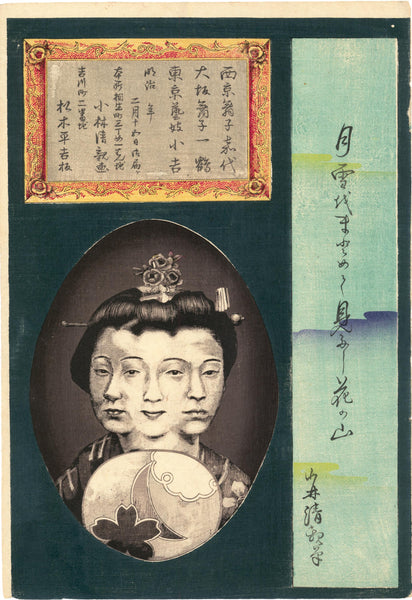 西京舞子嘉代
大坂舞子一鶴
東京藝妓小吉
明治 年
二月十九日御届
本所相生町三丁目一番地
小林清親画
吉川町二番地
松木平吉板
月雪代まとめて見ふし花の山
清親筆